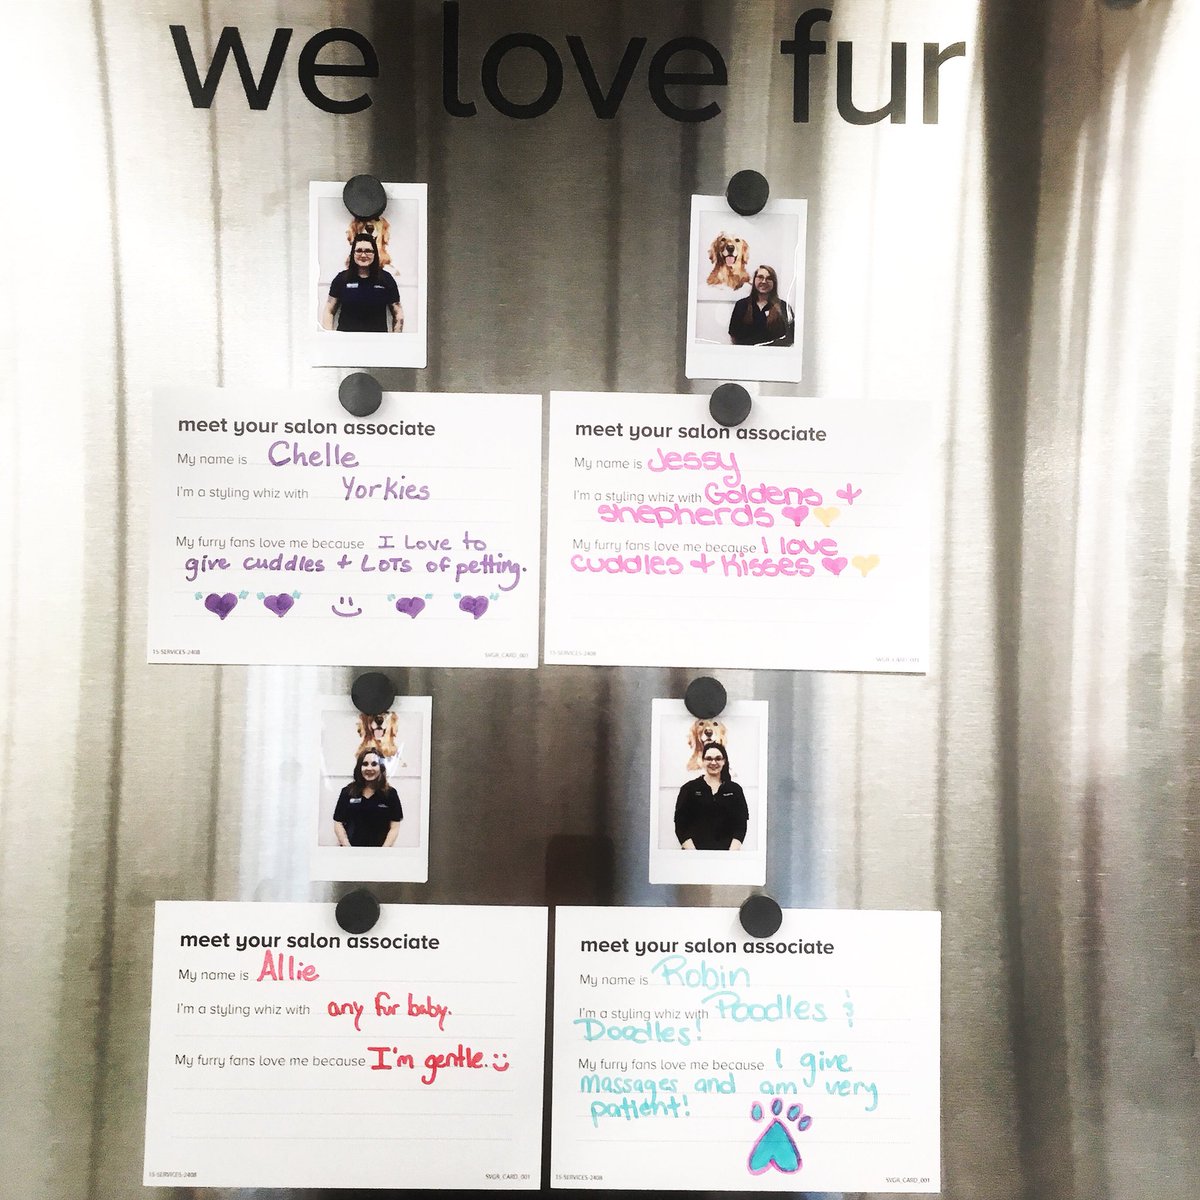 we love fur
meet your salon associate
My name is Chelle
I'm a styling whiz with Yorkies
My furry fans love me because I Love to
give cuddles + LOTS of petting.
15-SERVICES-2408
SVGR_CARD_001
meet your salon associate
My name is Jessy
I'm a styling whiz with Goldens +
shepherds
My furry fans love me because I love
cuddles + Kisses
15-SERVICES-2408
SVGR_CARD_001
meet your salon associate
My name is Allie
I'm a styling whiz with any fur baby.
My furry fans love me because I'm gentle.
15-SERVICES-2408
SVGR_CARD_001
meet your salon associate
My name is Robin
I'm a styling whiz with Poodles &
Doodles!
My furry fans love me because I give
massages and am very
patient!
15-SERVICES-2408
SVGR_CARD_001